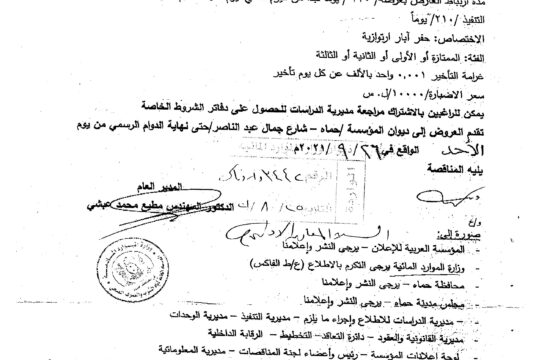 مدة ارتباط العارض بعرضه
التنفيذ /٢١٠/ يوماً
الاختصاص: حفر آبار ارتوازية
الفئة: الممتازة أو الأولى أو الثانية أو الثالثة
غرامة التأخير ٠.٠٠١ واحد بالألف عن كل يوم تأخير
سعر الاضبارة/١٠٠٠٠/ل.س
يمكن للراغبين بالاشتراك مراجعة مديرية الدراسات للحصول على دفاتر الشروط الخاصة
تقدم العروض إلى ديوان المؤسسة /حماه – شارع جمال عبد الناصر/حتى نهاية الدوام الرسمي من يوم
الأحد الواقع في ٢٦/٩/٢٠٢١م
يليه المناقصة
الواردة
الرقم
المدير العام
الدكتور المهندس مطيع محمد عبشي
صورة إلى:
- المؤسسة العربية للإعلان – يرجى النشر وإعلامنا
- وزارة الموارد المائية يرجى التكرم بالاطلاع (ع/ط الفاكس)
- محافظة حماه – يرجى النشر وإعلامنا
- مجلس مدينة حماه – يرجى النشر وإعلامنا
- مديرية الدراسات للاطلاع وإجراء ما يلزم – مديرية التنفيذ – مديرية الوحدات
- مديرية القانونية والعقود – دائرة التعاقد – التخطيط – الرقابة الداخلية
- لوحة إعلانات المؤسسة – رئيس وأعضاء لجنة المناقصات – مديرية المعلوماتية